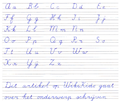 Aa Bb Cc Dd Ee
Ff Gg Hh Ii Jj
Kk Ll Mm Nn
Oo Pp Qq Rr Ss
Tt Uu Vv Ww
Xx Yy Zz
Dit artikel op Wikikids gaat
over het onderwerp schrijven